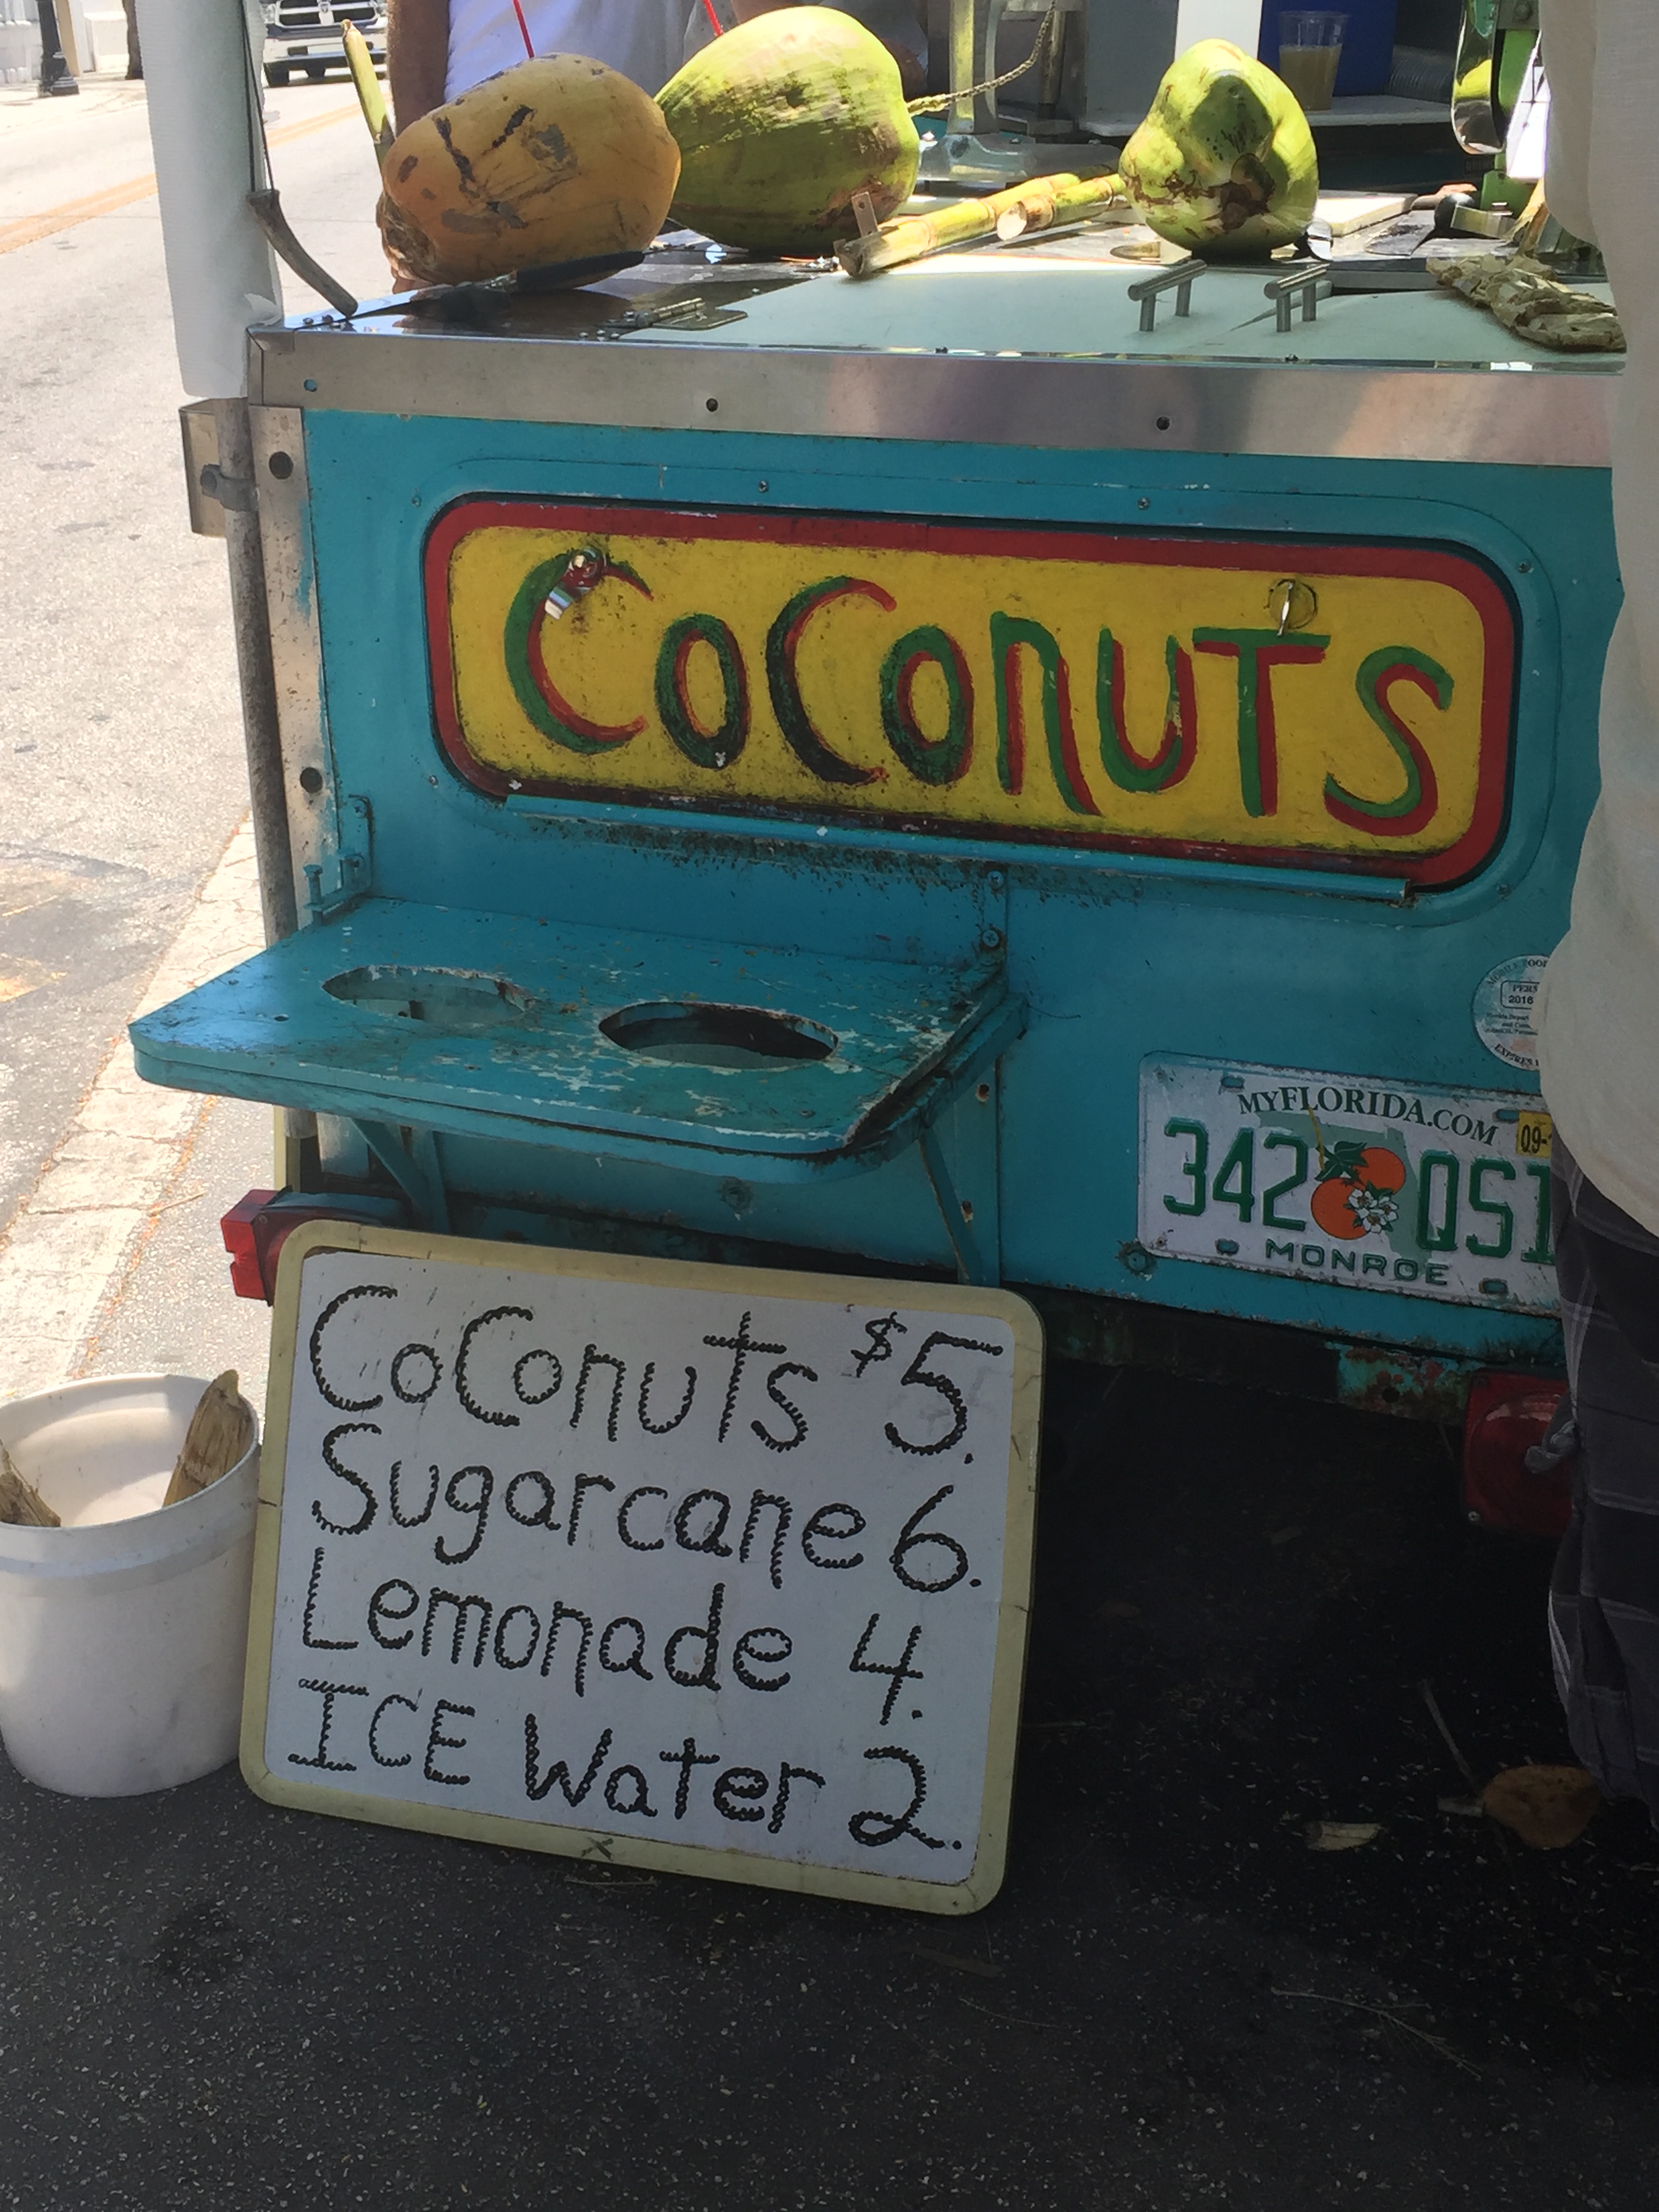 CoConuTs
PER
2016
EXPIRES
MYFLORIDA.COM
09-
342 QS1
MONROE
CoConuts $5.
Sugarcane 6.
Lemonade 4.
ICE Water 2.